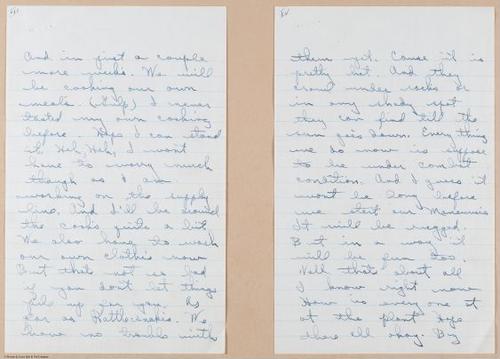 And in just a couple
more weeks. We will
be cooking our own
meals. (Gulp) I never
tasted my own cooking
before. Hope I can stand
it. Heh, Heh, I won't
have to worry much
though as I am
working on the supply
line. And I'll be around
the cooks quite a bit.
We also have to wash
our own clothes now
But that's not so bad
if you don't let things
pile up on you. As
far as Rattlesnakes. We
have no trouble with
them yet. Cause it is
pretty hot. And they
crawl under rocks or
in any shady spot
they can find till the
sun goes down. Every thing
we do now is suppose
to be under combat
condition. And I guess it
wont be long before
we start our Maneuvers
It will be rugged.
But in a way it
will be fun too.
Well that's about all
I know right now.
How is every one at
at the plant Hope
there all okay. By